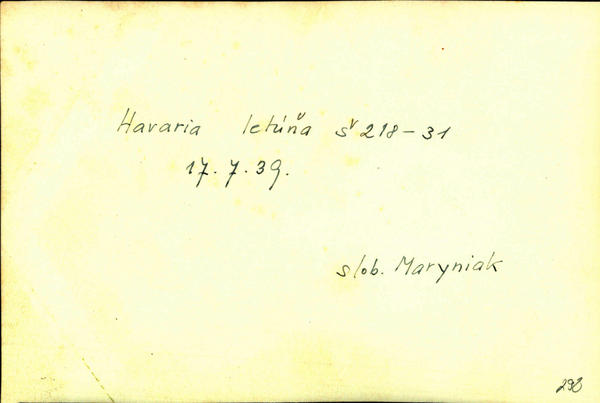 Havaria letúňa š 218-31
17.7.39.
slob. Maryniak
298